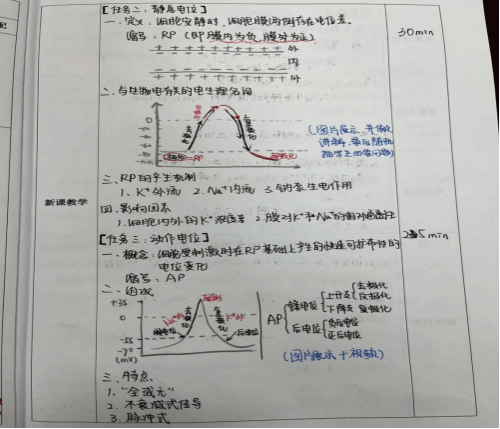 [任务二：静息电位]
一、定义：细胞安静时，细胞膜两侧存在电位差。
缩写：RP (即膜内为负，膜外为正)
30min
外
内
外
二、与生物电有关的电生理名词
去极化
超极化
=RP
(图片展示、并做
讲解，最后随机
抽学生回答问题)
新课教学
三、RP的产生机制
1、K+外流 2、Na+内流 3、钠泵生电作用
四、影响因素
1.细胞内外的K+浓度差 2.膜对K+和Na+的相对通透性
[任务三：动作电位]
25min
一、概念：细胞受刺激时在RP基础上产生的快速可扩布性的
电位变化
缩写：AP
二、组成
+35
0
-55
-70
(mV)
去极化
复极化
K+外
阈电位
后电位
AP
锋电位
上升支
去极化
反极化
下降支
复极化
后电位
负后电位
正后电位
(图片展示+视频)
三、特点
1."全或无"
2.不衰减式传导
3.脉冲式